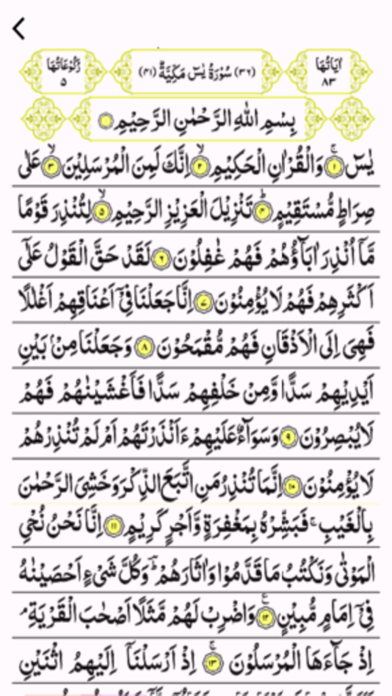 اٰیَاتُهَا ٨٣ (٣٦) سُوْرَةُ یٰسٓ مَكِّیَّةٌ (٤١) رُكُوْعَاتُهَا ٥
بِسْمِ اللّٰهِ الرَّحْمٰنِ الرَّحِیْمِ
یٰسٓ ۚ﴿١﴾ وَالْقُرْاٰنِ الْحَكِیْمِ ۙ﴿٢﴾ اِنَّكَ لَمِنَ الْمُرْسَلِیْنَ ۙ﴿٣﴾ عَلٰی
صِرَاطٍ مُّسْتَقِیْمٍ ؕ﴿٤﴾ تَنْزِیْلَ الْعَزِیْزِ الرَّحِیْمِ ۙ﴿٥﴾ لِتُنْذِرَ قَوْمًا
مَّاۤ اُنْذِرَ اٰبَآؤُهُمْ فَهُمْ غٰفِلُوْنَ ﴿٦﴾ لَقَدْ حَقَّ الْقَوْلُ عَلٰۤی
اَكْثَرِهِمْ فَهُمْ لَا یُؤْمِنُوْنَ ﴿٧﴾ اِنَّا جَعَلْنَا فِیْۤ اَعْنَاقِهِمْ اَغْلٰلًا
فَهِیَ اِلَی الْاَذْقَانِ فَهُمْ مُّقْمَحُوْنَ ﴿٨﴾ وَجَعَلْنَا مِنْۢ بَیْنِ
اَیْدِیْهِمْ سَدًّا وَّمِنْ خَلْفِهِمْ سَدًّا فَاَغْشَیْنٰهُمْ فَهُمْ
لَا یُبْصِرُوْنَ ﴿٩﴾ وَسَوَآءٌ عَلَیْهِمْ ءَاَنْذَرْتَهُمْ اَمْ لَمْ تُنْذِرْهُمْ
لَا یُؤْمِنُوْنَ ﴿١٠﴾ اِنَّمَا تُنْذِرُ مَنِ اتَّبَعَ الذِّكْرَ وَخَشِیَ الرَّحْمٰنَ
بِالْغَیْبِ ۚ فَبَشِّرْهُ بِمَغْفِرَةٍ وَّاَجْرٍ كَرِیْمٍ ﴿١١﴾ اِنَّا نَحْنُ نُحْیِ
الْمَوْتٰی وَنَكْتُبُ مَا قَدَّمُوْا وَاٰثَارَهُمْ ؕ وَكُلَّ شَیْءٍ اَحْصَیْنٰهُ
فِیْۤ اِمَامٍ مُّبِیْنٍ ﴿١٢﴾ وَاضْرِبْ لَهُمْ مَّثَلًا اَصْحٰبَ الْقَرْیَةِ ۘ
اِذْ جَآءَهَا الْمُرْسَلُوْنَ ۚ﴿١٣﴾ اِذْ اَرْسَلْنَاۤ اِلَیْهِمُ اثْنَیْنِ